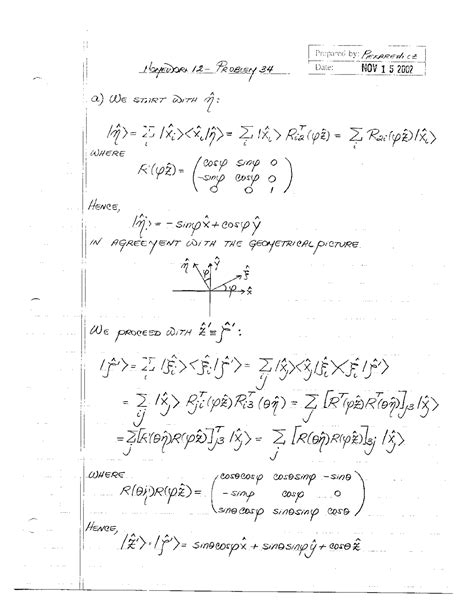 Prepared by: Pekarewicz
Date: NOV 15 2002
HOMEWORK 12 - PROBLEM 34
a) WE START WITH η̂:
|η̂⟩ = Σ_i |x̂_i⟩⟨x̂_i|η̂⟩ = Σ_i |x̂_i⟩ R_{i2}^T(φẑ) = Σ_i R_{2i}(φẑ)|x̂_i⟩
WHERE
R(φẑ) = ( cosφ sinφ 0
-sinφ cosφ 0
0 0 1 )
HENCE,
|η̂⟩ = -sinφ x̂ + cosφ ŷ
IN AGREEMENT WITH THE GEOMETRICAL PICTURE.
η̂ ŷ ξ̂
φ φ x̂
WE PROCEED WITH ẑ' = ζ̂':
|ζ̂'⟩ = Σ_i |ξ̂_i⟩⟨ξ̂_i|ζ̂'⟩ = Σ_{ij} |x̂_j⟩⟨x̂_j|ξ̂_i⟩⟨ξ̂_i|ζ̂'⟩
= Σ_{ij} |x̂_j⟩ R_{ji}^T(φẑ) R_{i3}^T(θη̂) = Σ_j [R^T(φẑ)R^T(θη̂)]_{j3} |x̂_j⟩
= Σ_j [R(θη̂)R(φẑ)]^T_{j3} |x̂_j⟩ = Σ_j [R(θη̂)R(φẑ)]_{3j} |x̂_j⟩
WHERE
R(θη̂)R(φẑ) = ( cosθcosφ cosθsinφ -sinθ
-sinφ cosφ 0
sinθcosφ sinθsinφ cosθ )
HENCE,
|ẑ'⟩ = |ζ̂'⟩ = sinθcosφ x̂ + sinθsinφ ŷ + cosθ ẑ